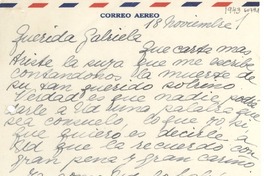 CORREO AEREO
1943
18 Noviembre
Querida Gabriela
Que carta mas
triste la suya que me escribe
contandonos la muerte de
su tan querido sobrino
Verdad es que nadie podra
darle a Ud una palabra que
sea consuelo. Lo que yo si
que quiero es decirle a
Ud que la recuerdo con
gran pena y gran cariño